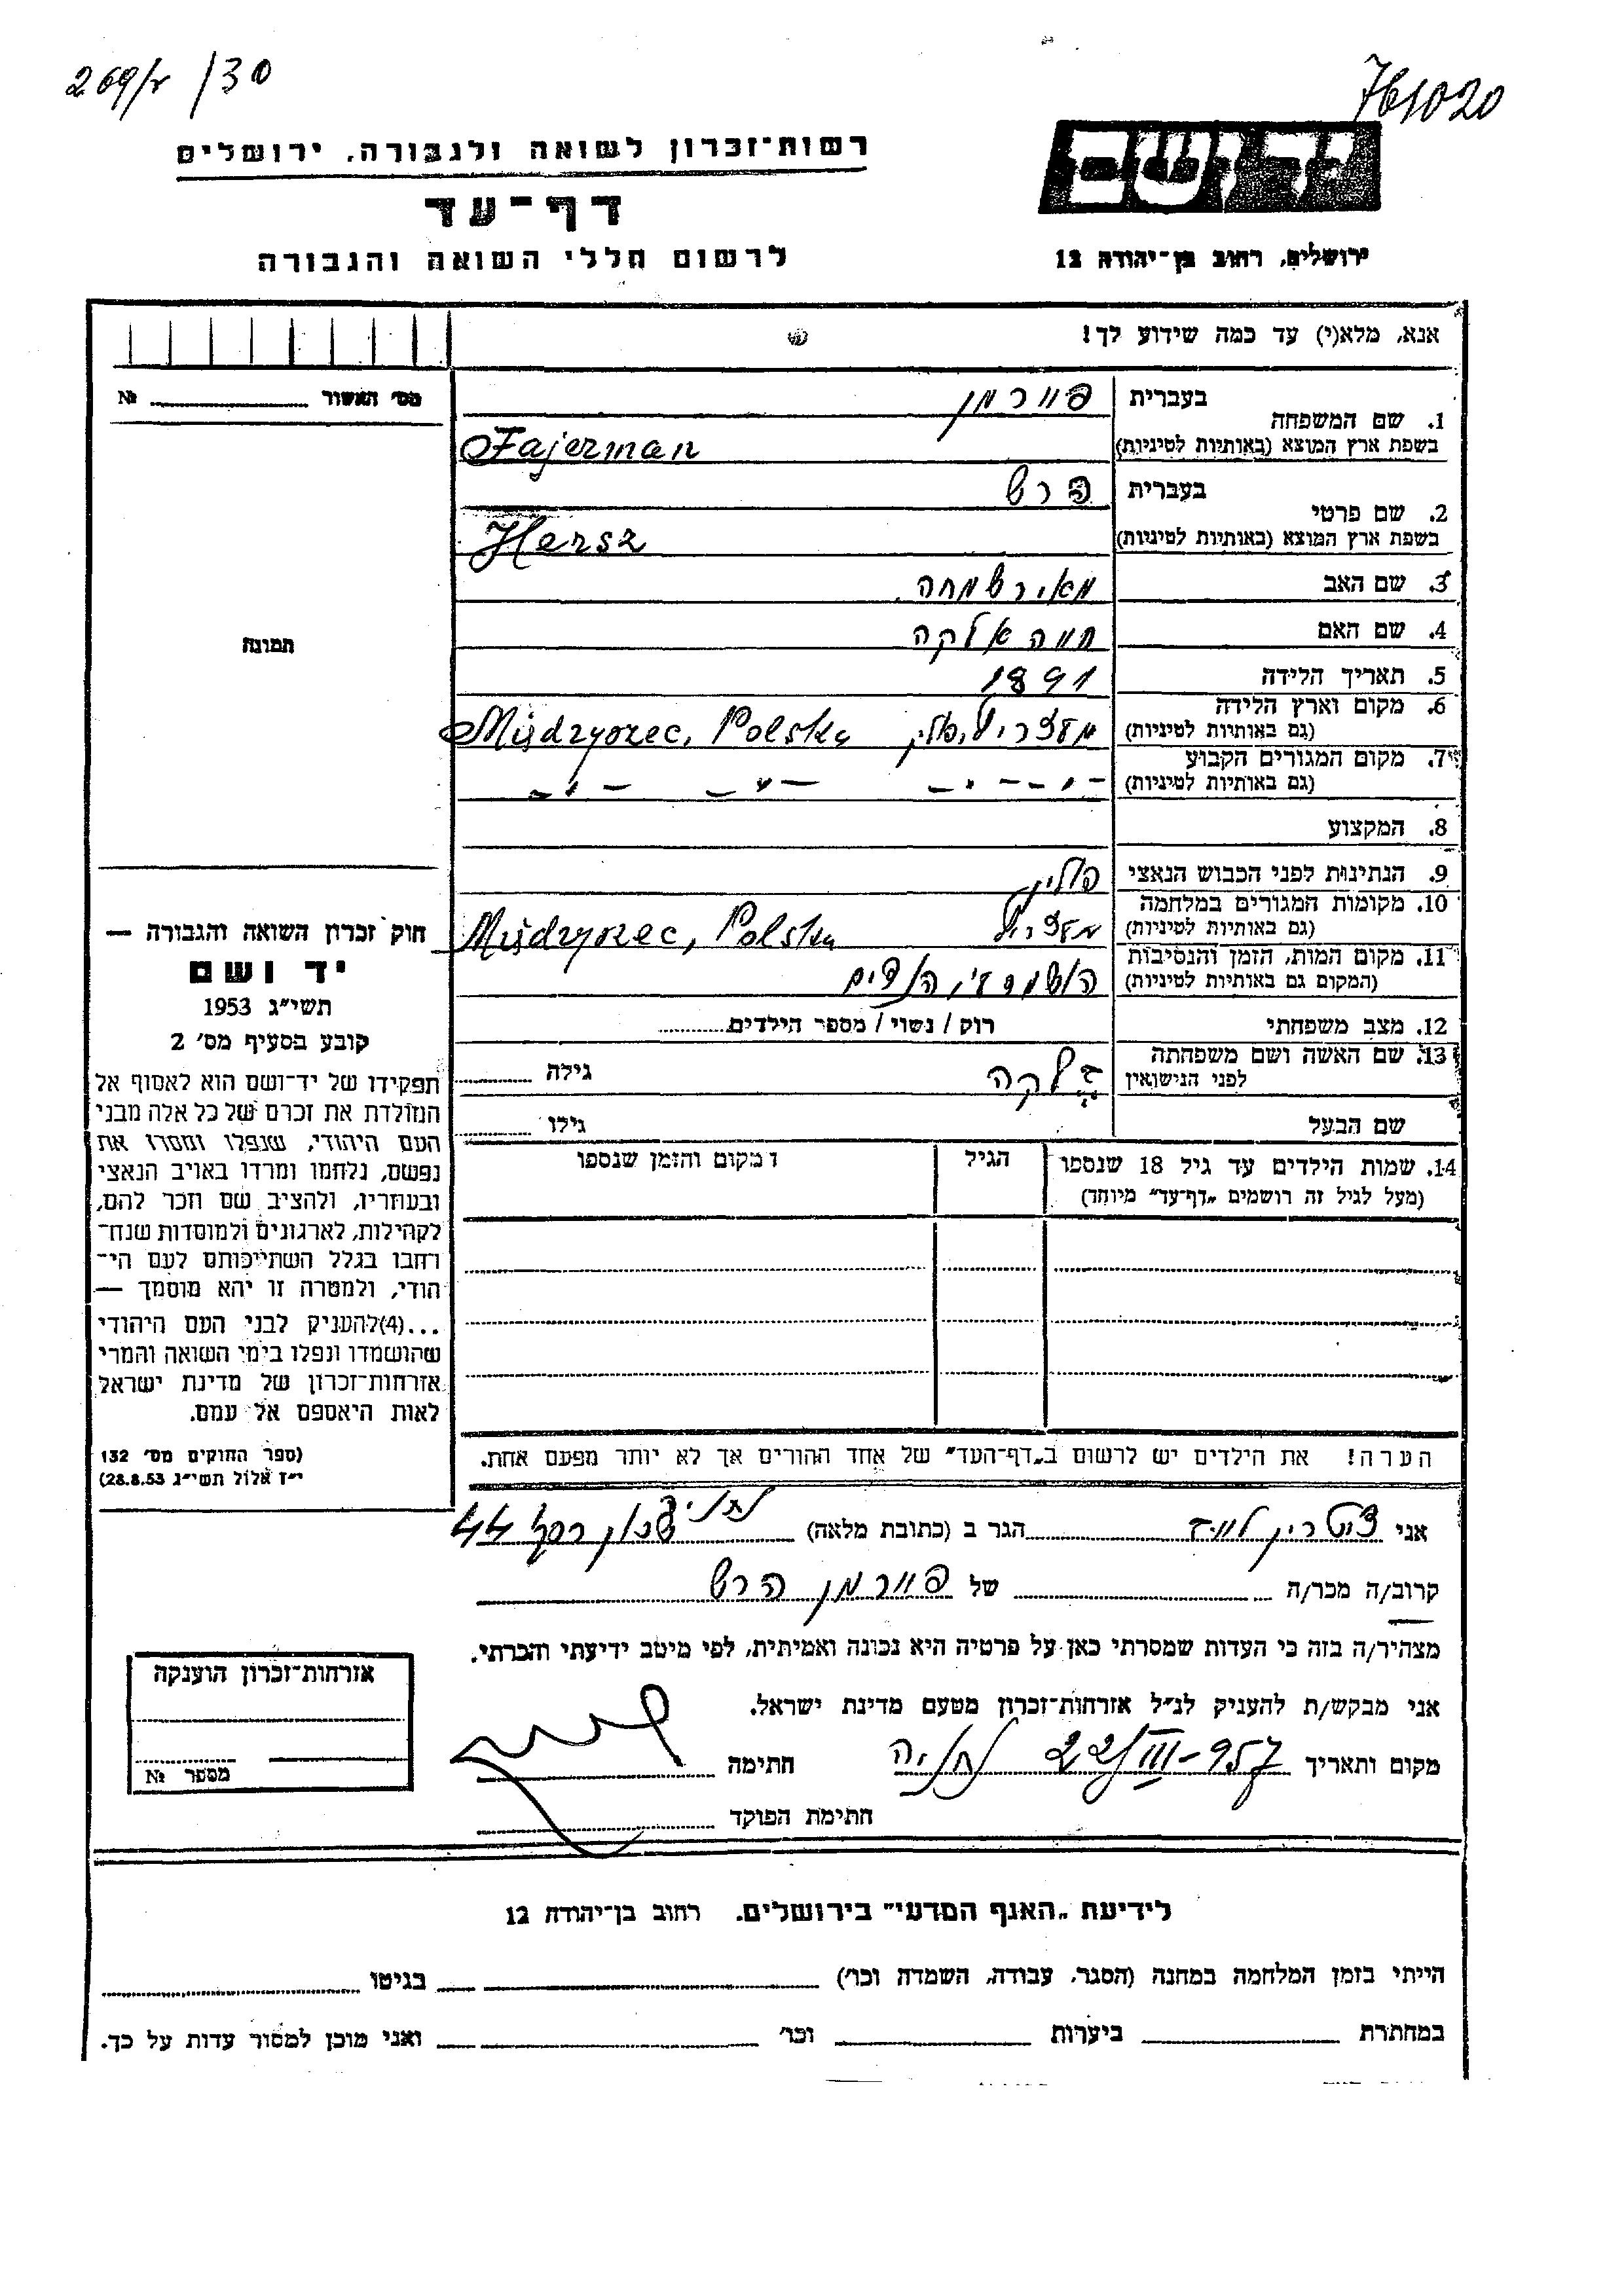 269/ר /30
761020
רשות־זכרון לשואה ולגבורה, ירושלים
יד ושם
דף־עד
לרשום חללי השואה והגבורה
ירושלים, רחוב בן־יהודה 12
אנא, מלא(י) עד כמה שידוע לך!
מס׳ האשור № 
1. שם המשפחה
בעברית פיירמן
בשפת ארץ המוצא (באותיות לטיניות) Fajerman
2. שם פרטי
בעברית הרש
בשפת ארץ המוצא (באותיות לטיניות) Hersz
3. שם האב מאיר שמחה
4. שם האם חווה אלקה
5. תאריך הלידה 1891
6. מקום וארץ הלידה
(גם באותיות לטיניות) מזריץ, פולין Międzyrzec, Polska
7. מקום המגורים הקבוע
(גם באותיות לטיניות) - " - - " - - " - - " -
8. המקצוע
9. הנתינות לפני הכבוש הנאצי פולין
10. מקומות המגורים במלחמה
(גם באותיות לטיניות) Międzyrzec, Polska
11. מקום המות, הזמן והנסיבות
(המקום גם באותיות לטיניות)
12. מצב משפחתי רוק / נשוי / מספר הילדים
13. שם האשה ושם משפחתה
לפני הנישואין גילה
שם הבעל גילו
14. שמות הילדים עד גיל 18 שנספו
(מעל לגיל זה רושמים „דף־עד״ מיוחד)
הגיל
ומקום והזמן שנספו
תמונה
חוק זכרון השואה והגבורה —
יד ושם
תשי״ג 1953
קובע בסעיף מס׳ 2
תפקידו של יד־ושם הוא לאסוף אל
המולדת את זכרם של כל אלה מבני
העם היהודי, שנפלו ומסרו את
נפשם, נלחמו ומרדו באויב הנאצי
ובעוזריו, ולהציב שם וזכר להם,
לקהילות, לארגונים ולמוסדות שנח־
רחבו בגלל השתייכותם לעם הי־
הודי, ולמטרה זו יהא מוסמך —
...(4)להעניק לבני העם היהודי
שהושמדו ונפלו בימי השואה והמרי
אזרחות־זכרון של מדינת ישראל
לאות היאספם אל עמם.
(ספר החוקים מס׳ 132
י״ז אלול תשי״ג 28.8.53)
הערה! את הילדים יש לרשום ב„דף־העד״ של אחד ההורים אך לא יותר מפעם אחת.
אני הגר ב (כתובת מלאה) 44
קרוב/ה מכר/ה של פיירמן הרש
מצהיר/ה בזה כי העדות שמסרתי כאן על פרטיה היא נכונה ואמיתית, לפי מיטב ידיעתי והכרתי.
אני מבקש/ת להעניק לנ״ל אזרחות־זכרון מטעם מדינת ישראל.
מקום ותאריך נתניה 22/III-957 חתימה
חתימת הפוקד
אזרחות־זכרון הוענקה
מספר №
לידיעת „האגף המדעי״ בירושלים. רחוב בן־יהודה 12
הייתי בזמן המלחמה במחנה (הסגר, עבודה, השמדה וכו׳) בגיטו
במחתרת ביערות וכו׳ ואני מוכן למסור עדות על כך.